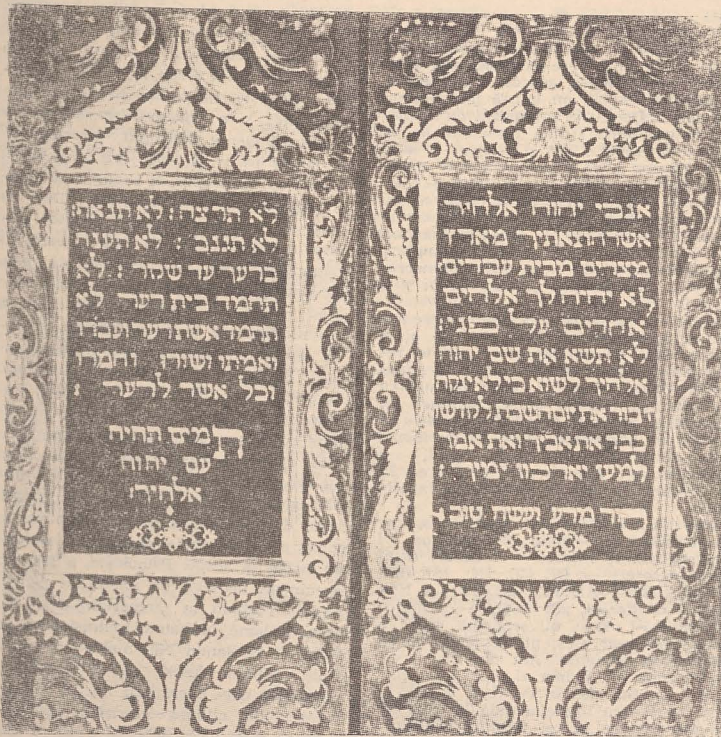 אנכי יהוה אלהיך
אשר הוצאתיך מארץ
מצרים מבית עבדים:
לא יהיה לך אלהים
אחרים על פני:
לא תשא את שם יהוה
אלהיך לשוא כי לא ינקה
זכור את יום השבת לקדשו
כבד את אביך ואת אמך
למען יארכון ימיך:
סור מרע ועשה טוב
לא תרצח: לא תנאף:
לא תגנב: לא תענה
ברעך עד שקר: לא
תחמד בית רעך לא
תחמד אשת רעך ועבדו
ואמתו ושורו וחמרו
וכל אשר לרעך:
תמים תהיה
עם יהוה
אלהיך: